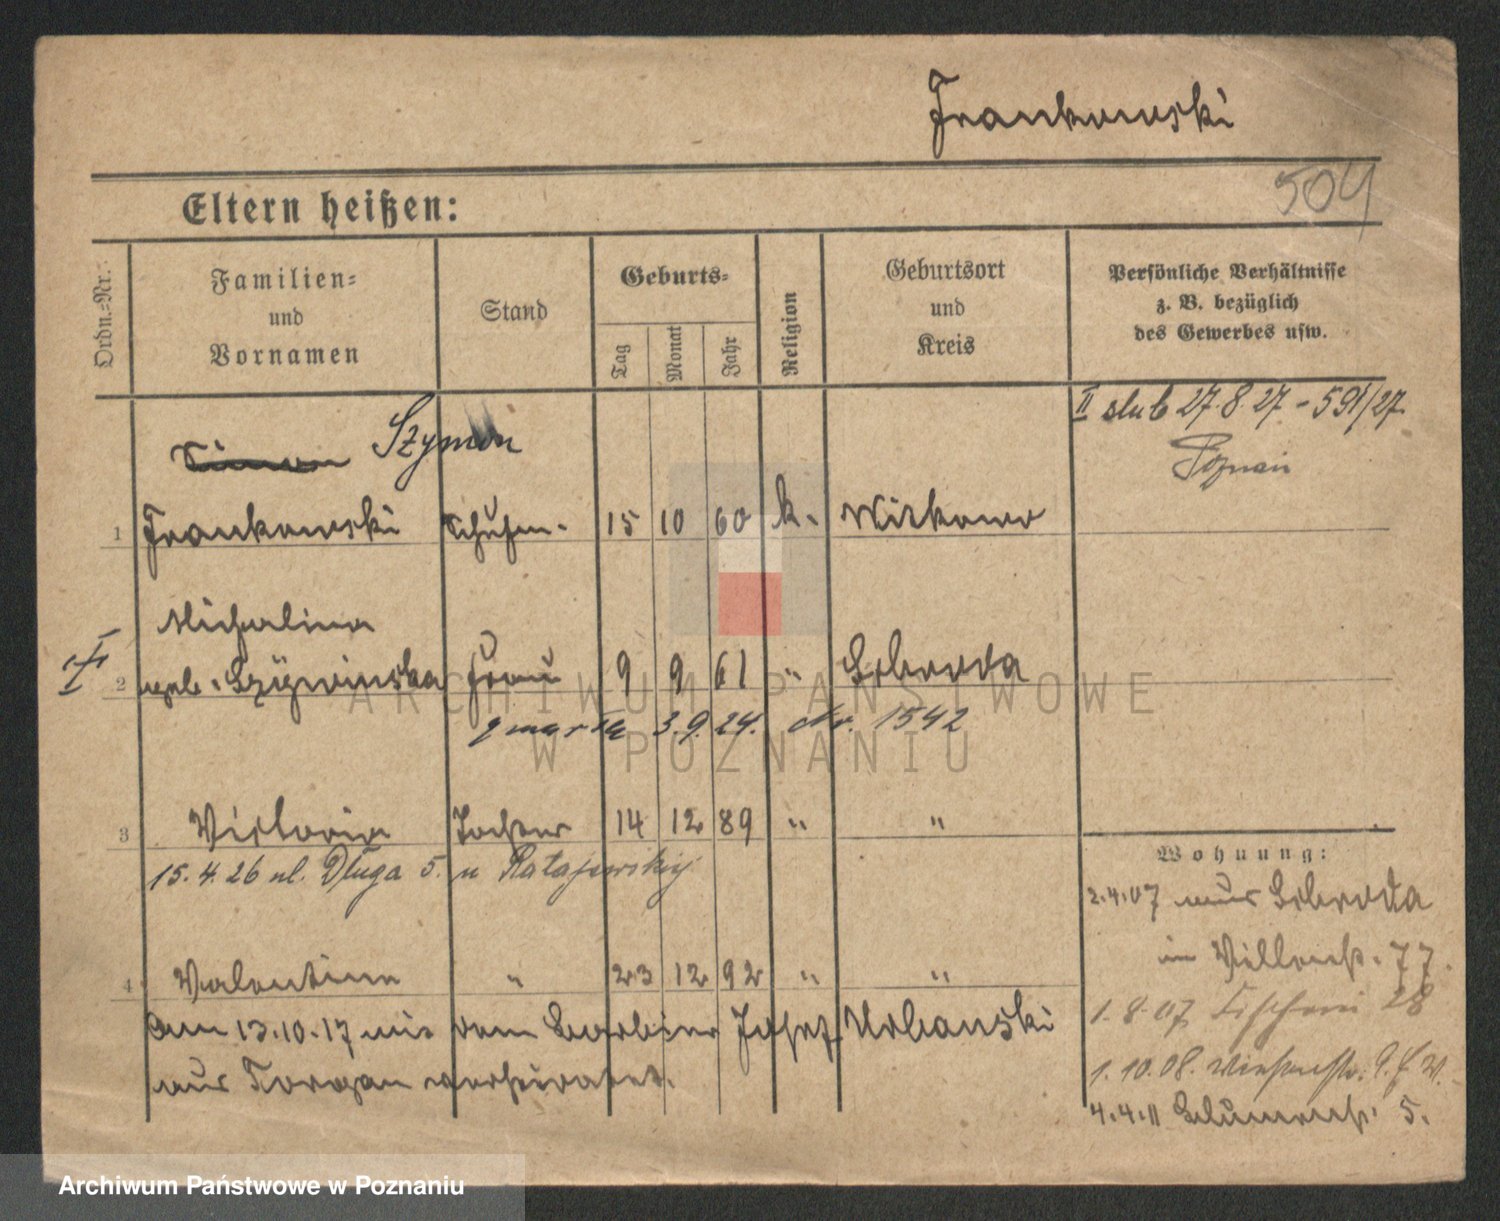 Frankowski
504
Eltern heißen:
Ordn.-Nr.
Familien-
und
Vornamen
Stand
Geburts-
Tag
Monat
Jahr
Religion
Geburtsort
und
Kreis
Persönliche Verhältnisse
z. B. bezüglich
des Gewerbes usw.
II slub 27.8.27 - 591/27
Poznań
Simon Szymon
1 Frankowski 15 10 60 k. Witkowo
Michalina
2 geb. Frau 9 9 61 " Schroda
zmarła 3.9.24. Nr. 1542
3 Victoria Tochter 14 12 89 " "
15.4.26 ul. Długa 5. u Ratajewskiej
4 Valentine " 23 12 92 " "
Am 13.10.17 mit dem Barbier Josef Urbanski
aus Torgau verheiratet.
Wohnung:
2.4.07 aus Schroda
in 77.
1.8.07 Fischerei 28
1.10.08. Wiesenstr. 9.
4.4.11 Blumenstr. 5.
ARCHIWUM PAŃSTWOWE
W POZNANIU
Archiwum Państwowe w Poznaniu